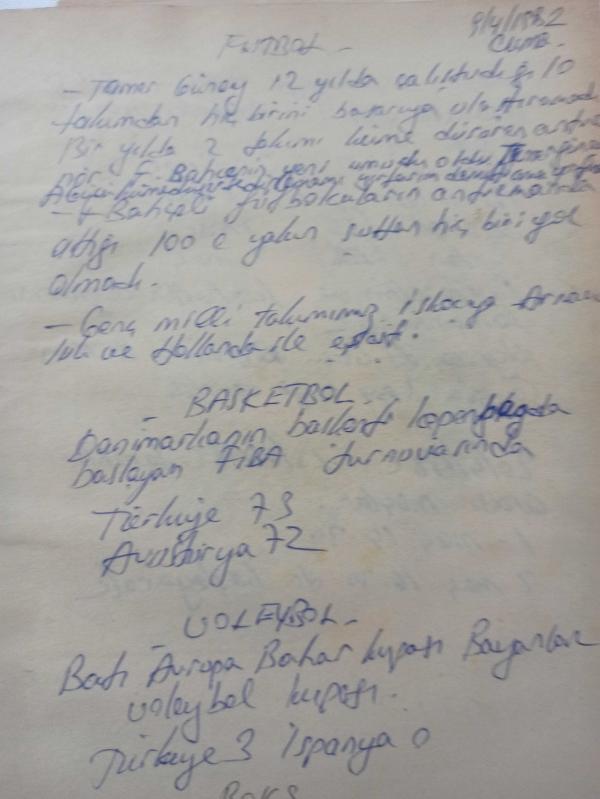 9/4/1982
Cuma.
FUTBOL -
- Tamer Güney 12 yılda çalıştırdığı 10
takımdan hiç birini başarıya ulaştıramadı
Bir yılda 2 takımı küme düşüren antre
nör F. Bahçenin yeni umudu oldu.
- F Bahçeli futbolcuların antremanda
attığı 100 e yakın şuttan hiç biri gol
olmadı.
- Genç milli takımımız İskoçya Arnavut
luk ve Hollanda ile eşleşti.
- BASKETBOL
Danimarkanın başkenti kopenhagda
başlayan FİBA turnuvasında
Türkiye 73
Avusturya 72
- VOLEYBOL -
Batı Avrupa Bahar kupası Bayanlar
voleybol kupası.
Türkiye 3 İspanya 0
BOKS